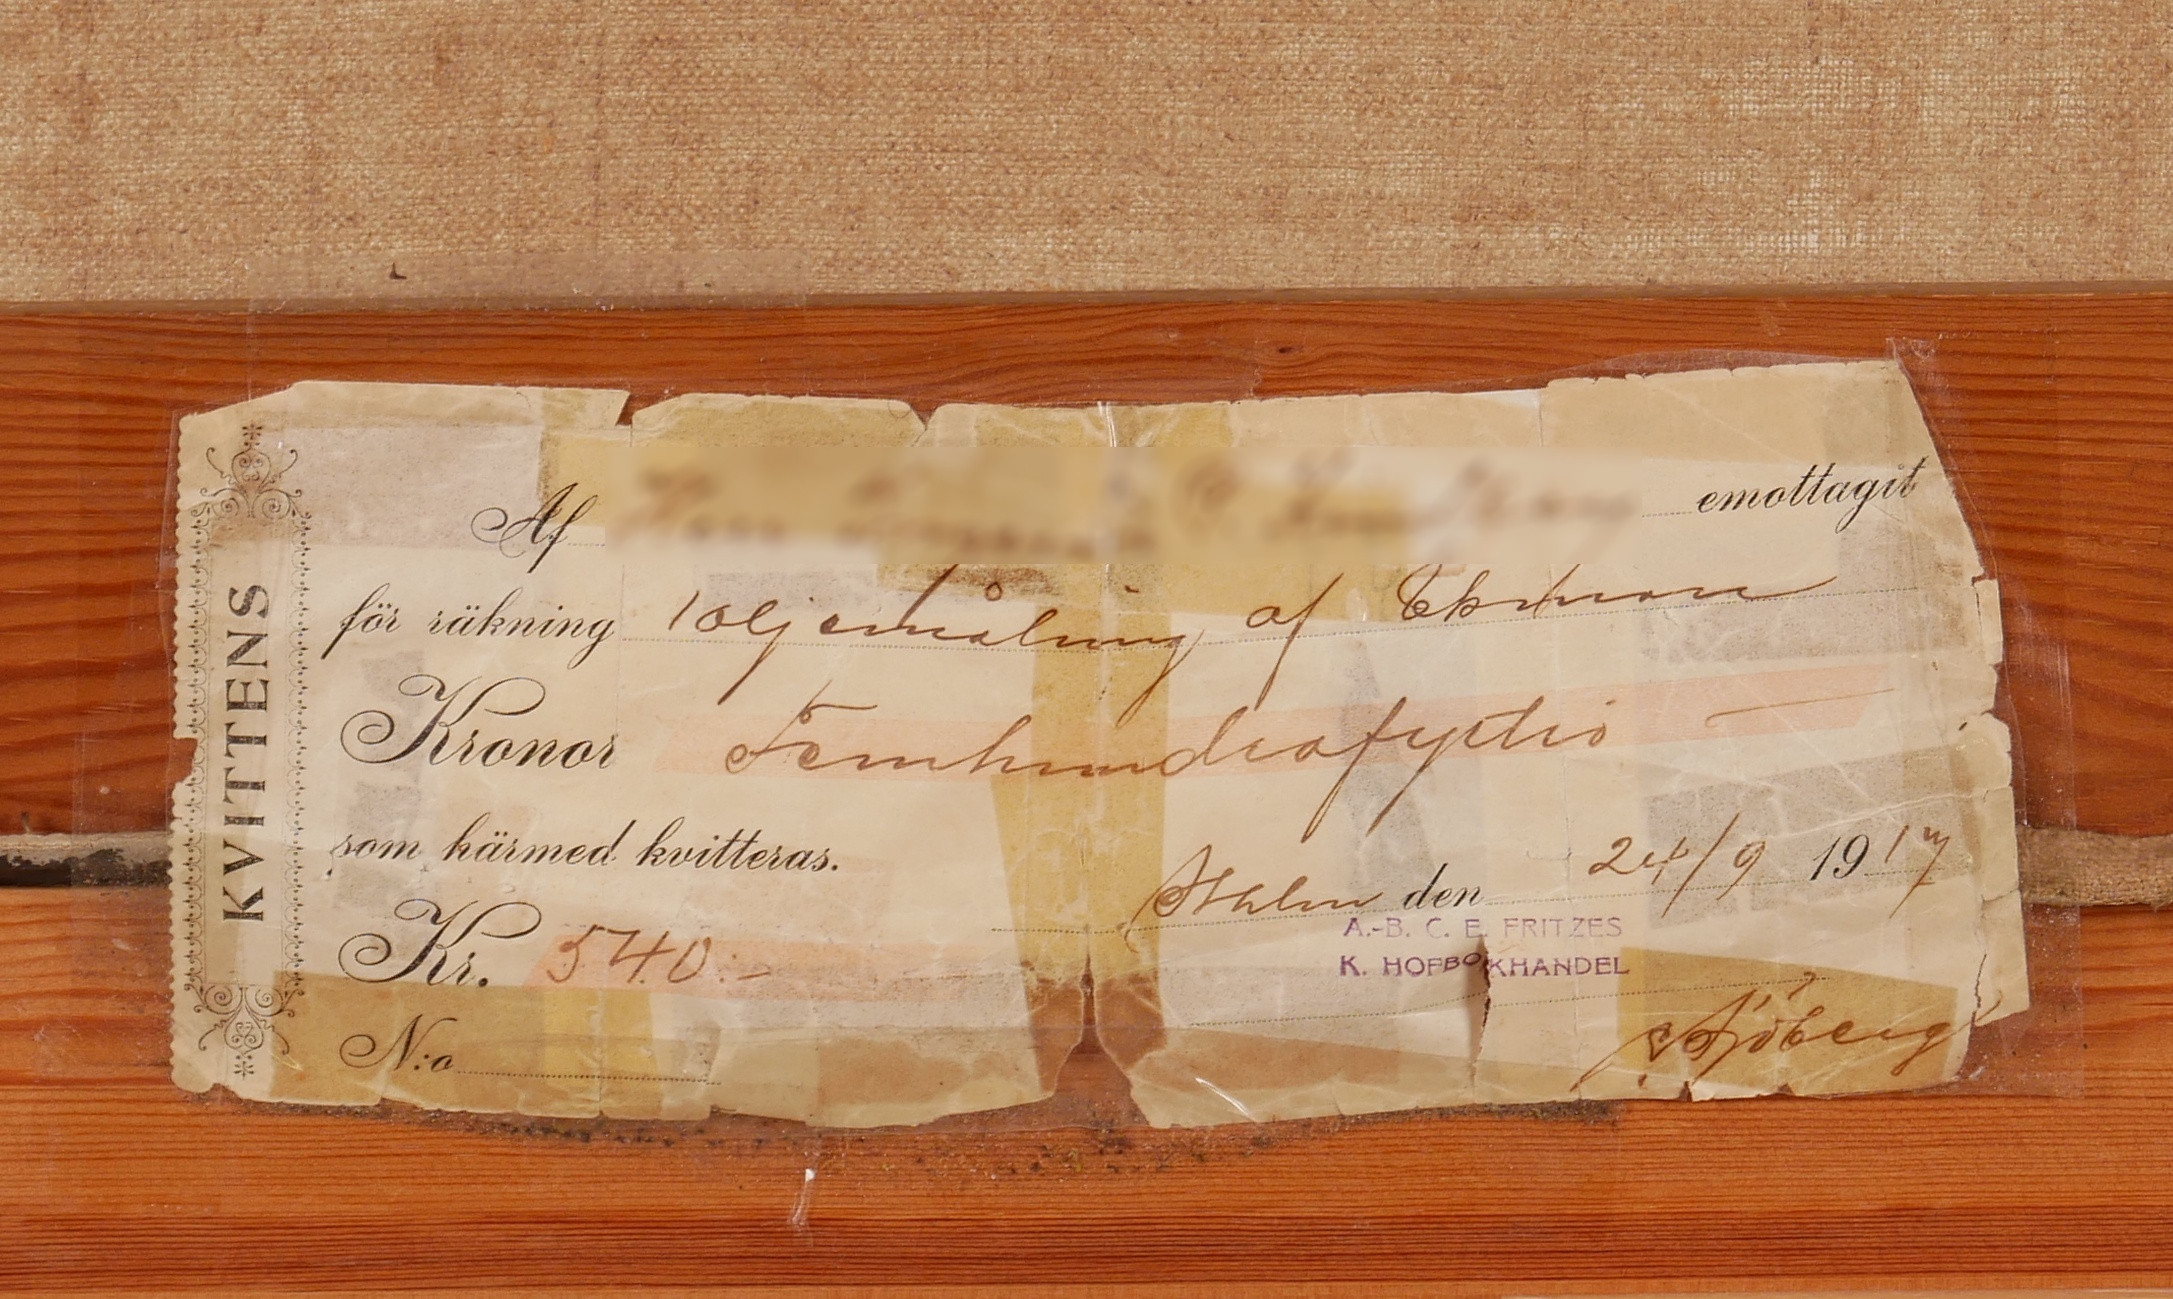 KVITTENS
Af emottagit
för räkning 1 oljemålning af Ekman
Kronor Femhundrafyrtio —
som härmed kvitteras.
Sthlm den 24/9 1917
Kr. 540:-
A.-B. C. E. FRITZES
K. HOFBOKHANDEL
N:o
Sjöberg